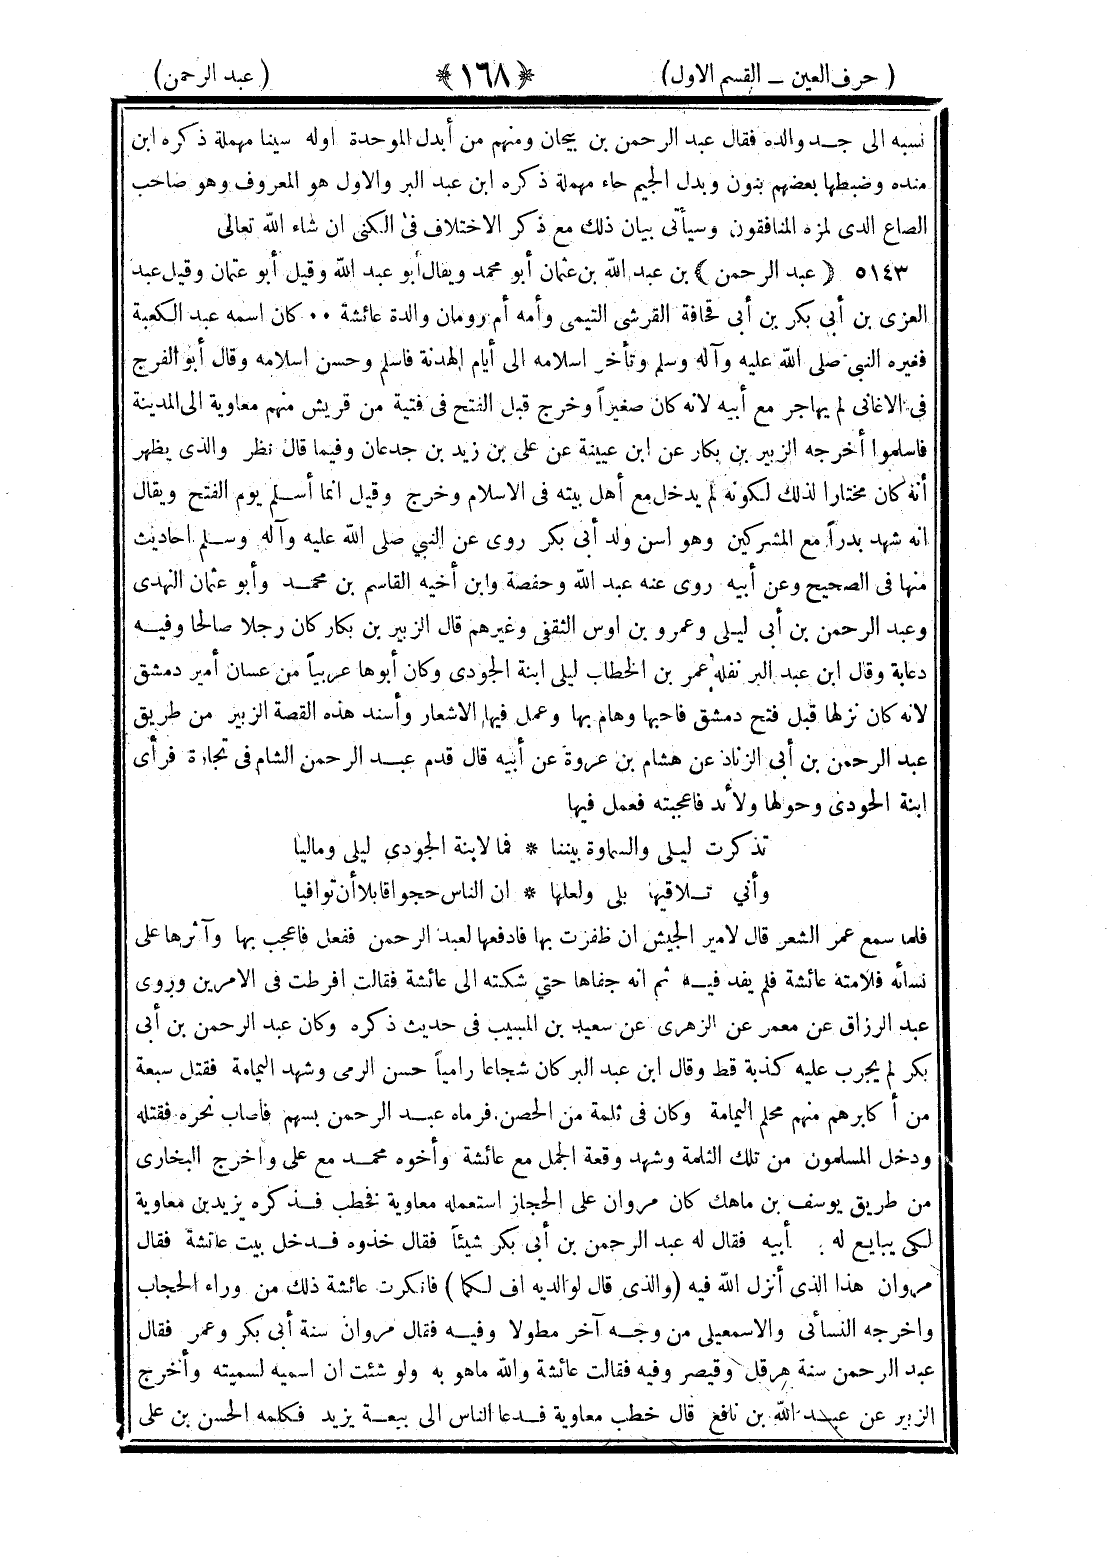 ( حرف العين ــ القسم الاول) ﴿١٦٨﴾ (عبد الرحمن)
نسبه الى جـد والده فقال عبد الرحمن بن بيجان ومنهم من أبدل الموحدة اوله سينا مهملة ذكره ابن
منده وضبطها بعضهم بنون وبدل الجيم حاء مهملة ذكره ابن عبد البر والاول هو المعروف وهو صاحب
الصاع الذى لمزه المنافقون وسيأتى بيان ذلك مع ذكر الاختلاف فى الكنى ان شاء الله تعالى
٥١٤٣ ﴿عبد الرحمن﴾ بن عبد الله بن عثمان أبو محمد ويقال أبو عبد الله وقيل أبو عثمان وقيل عبد
العزى بن أبي بكر بن أبى قحافة القرشى التيمى وأمه أم رومان والدة عائشة ٠٠ كان اسمه عبد الكعبة
فغيره النبي صلى الله عليه وآله وسلم وتأخر اسلامه الى أيام الهدنة فاسلم وحسن اسلامه وقال أبو الفرج
فى الاغانى لم يهاجر مع أبيه لانه كان صغيراً وخرج قبل الفتح فى فتية من قريش منهم معاوية الى المدينة
فاسلموا أخرجه الزبير بن بكار عن ابن عيينة عن على بن زيد بن جدعان وفيما قال نظر والذى يظهر
أنه كان مختارا لذلك لكونه لم يدخل مع أهل بيته فى الاسلام وخرج وقيل انما أسـلم يوم الفتح ويقال
انه شهد بدراً مع المشركين وهو اسن ولد أبى بكر روى عن النبي صلى الله عليه وآله وسـلم احاديث
منها فى الصحيح وعن أبيه روى عنه عبد الله وحفصة وابن أخيه القاسم بن محمـد وأبو عثمان النهدى
وعبد الرحمن بن أبى ليـلى وعمرو بن اوس الثقفى وغيرهم قال الزبير بن بكار كان رجلا صالحا وفيـه
دعابة وقال ابن عبد البر نفله عمر بن الخطاب ليلى ابنة الجودى وكان أبوها عربياً من غسان أمير دمشق
لانه كان نزلها قبل فتح دمشق فاحبها وهام بها وعمل فيها الاشعار وأسند هذه القصة الزبير من طريق
عبد الرحمن بن أبى الزناد عن هشام بن عروة عن أبيه قال قدم عبـد الرحمن الشام فى تجارة فرأى
ابنة الجودى وحولها ولائد فاعجبته فعمل فيها
تذكرت ليـلى والسماوة بيننا * فما لابنة الجودي ليلى وماليا
وأني تـلاقيها بلى ولعلها * ان الناس حجوا قابلا أن توافيا
فلما سمع عمر الشعر قال لامير الجيش ان ظفرت بها فادفعها لعبد الرحمن ففعل فاعجب بها وآثرها على
نسائه فلامته عائشة فلم يفد فيـه ثم انه جفاها حتي شكته الى عائشة فقالت افرطت فى الامرين وروى
عبد الرزاق عن معمر عن الزهرى عن سعيد بن المسيب فى حديث ذكره وكان عبد الرحمن بن أبى
بكر لم يجرب عليه كذبة قط وقال ابن عبد البر كان شجاعا رامياً حسن الرمى وشهد اليمامة فقتل سبعة
من أكابرهم منهم محلم اليمامة وكان فى ثلمة من الحصن فرماه عبـد الرحمن بسهم فأصاب نحره فقتله
ودخل المسلمون من تلك الثلمة وشهد وقعة الجمل مع عائشة وأخوه محمـد مع على وأخرج البخارى
من طريق يوسف بن ماهك كان مروان على الحجاز استعمله معاوية فخطب فـذكره يزيد بن معاوية
لكى يبايع له أبيه فقال له عبد الرحمن بن أبى بكر شيئاً فقال خذوه فـدخل بيت عائشة فقال
مروان هذا الذى أنزل الله فيه (والذى قال لوالديه اف لكما) فانكرت عائشة ذلك من وراء الحجاب
واخرجه النسائى والاسمعيلى من وجـه آخر مطولا وفيـه فقال مروان سنة أبى بكر وعمر فقال
عبد الرحمن سنة هرقل وقيصر وفيه فقالت عائشة والله ماهو به ولو شئت ان اسميه لسميته وأخرج
الزبير عن عبـد الله بن نافع قال خطب معاوية فـدعا الناس الى بيعـة يزيد فـكلمه الحسن بن على